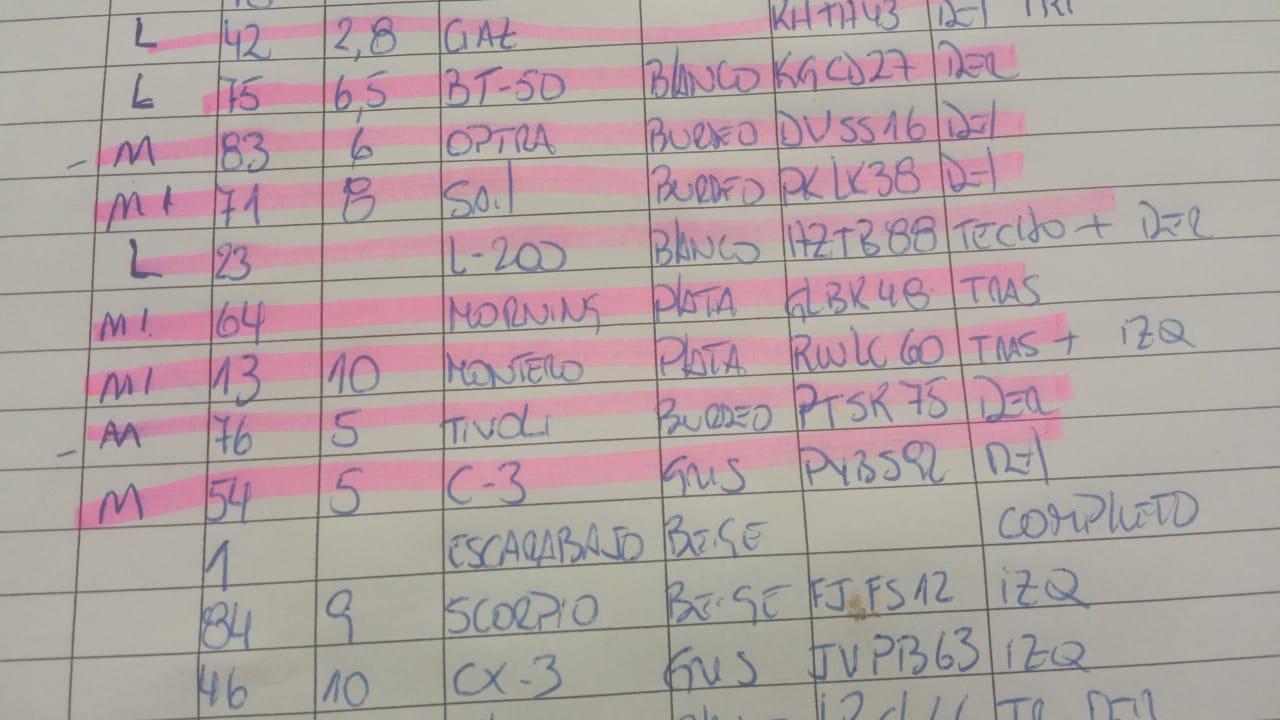 L 42 2,8 GAZ KHTH43
L 75 6,5 BT-50 BLANCO KGCD27 DER
- M 83 6 OPTRA BURDEO DVSS16 DEL
M 71 8 SAil BURDEO PKLK38 DEL
L 23 L-200 BLANCO HZTB88 TECHO + DER
M! 64 MORNING PLATA GLBR48 TRAS
M! 13 10 MONTERO PLATA RWLC60 TRAS + iZQ
- M 76 5 TiVOLi BURDEO PTSK75 DER
M 54 5 C-3 GRIS PYBS92 DEL
1 ESCARABAJO BEiGE COMPLETO
84 9 SCORPIO BEiGE FJFS12 iZQ
46 10 CX-3 GRIS JVPB63 iZQ